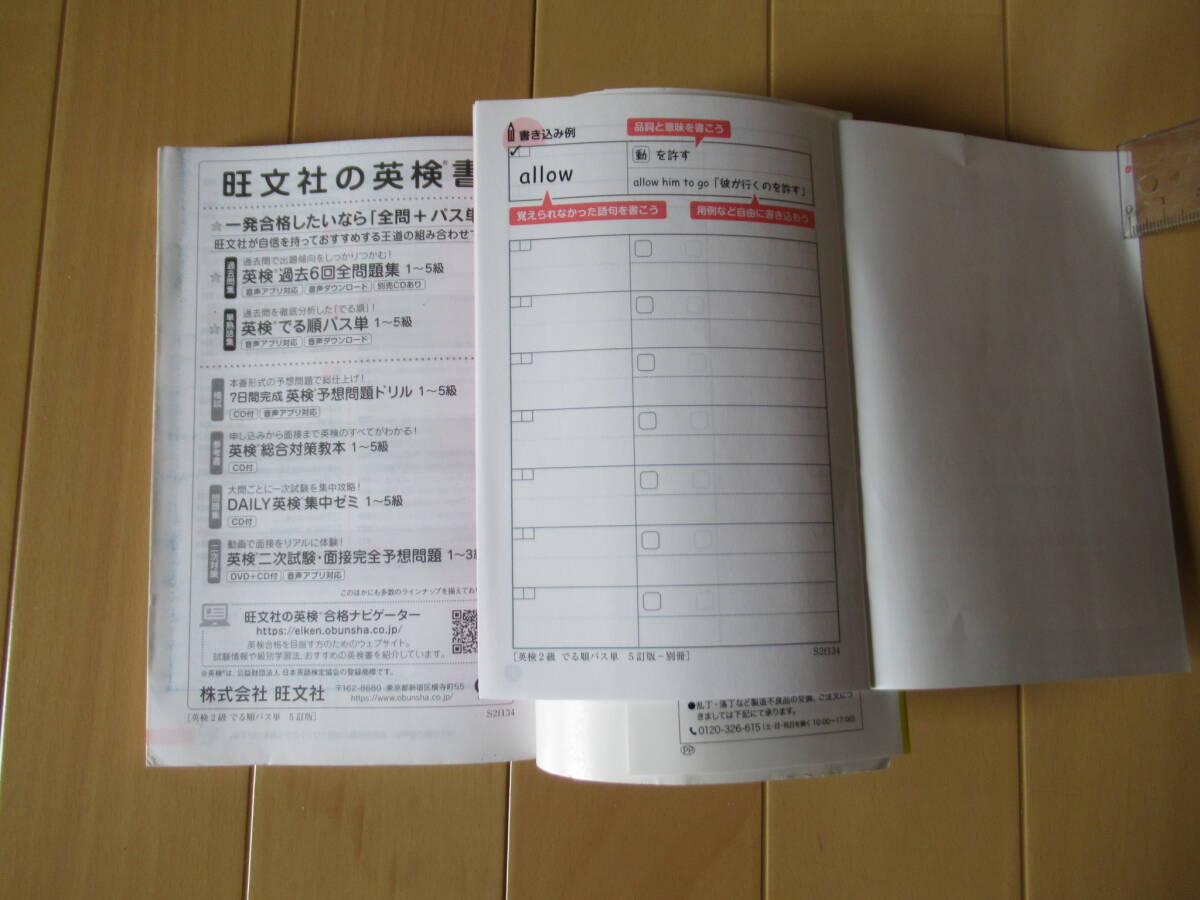 旺文社の英検®書
☆一発合格したいなら「全問+パス単
旺文社が自信を持っておすすめする王道の組み合わせ
☆
過去問集
過去問で出題傾向をしっかりつかむ!
英検®過去6回全問題集 1~5級
音声アプリ対応 音声ダウンロード 別売CDあり
☆
単熟語集
過去問を徹底分析した「でる順」!
英検®でる順パス単 1~5級
音声アプリ対応 音声ダウンロード
模試
本番形式の予想問題で総仕上げ!
7日間完成 英検®予想問題ドリル 1~5級
CD付 音声アプリ対応
参考書
申し込みから面接まで英検のすべてがわかる!
英検®総合対策教本 1~5級
CD付
問題集
大問ごとに一次試験を集中攻略!
DAILY英検®集中ゼミ 1~5級
CD付
二次対策
動画で面接をリアルに体験!
英検®二次試験・面接完全予想問題 1~3級
DVD+CD付 音声アプリ対応
このほかにも多数のラインナップを揃えてお
旺文社の英検®合格ナビゲーター
https://eiken.obunsha.co.jp/
英検合格を目指す方のためのウェブサイト。
試験情報や級別学習法、おすすめの英検書を紹介しています。
※英検®は、公益財団法人 日本英語検定協会の登録商標です。
株式会社 旺文社
〒162-8680 東京都新宿区横寺町55
https://www.obunsha.co.jp/
[英検2級 でる順パス単 5訂版]
S2f134
書き込み例
品詞と意味を書こう
allow
動 を許す
allow him to go「彼が行くのを許す」
覚えられなかった語句を書こう
用例など自由に書き込もう
[英検2級 でる順パス単 5訂版-別冊]
S2f134
●乱丁・落丁など製造不良品の交換、ご注文につ
きましては下記にて承ります。
0120-326-615(土・日・祝日を除く 10:00~17:00)
PP